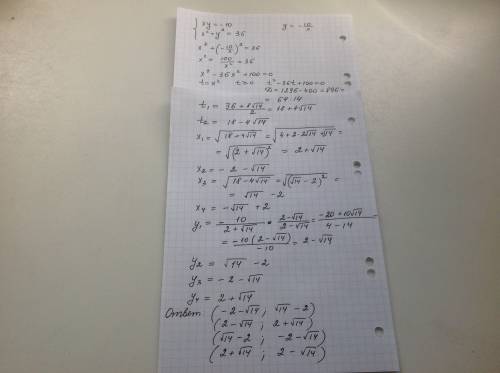 { xy = -10      y = -10/x
x² + y² = 36
x² + (-10/x)² = 36
x² + 100/x² = 36
x⁴ - 36x² + 100 = 0
t = x²   t ≥ 0   t² - 36t + 100 = 0
D = 1296 - 400 = 896 =
= 64·14
t₁ = (36 + 8√14)/2 = 18 + 4√14
t₂ = 18 - 4√14
x₁ = √(18 + 4√14) = √(4 + 2·2√14 + 14) =
= √((2 + √14)²) = 2 + √14
x₂ = - 2 - √14
x₃ = √(18 - 4√14) = √((√14 - 2)²) =
= √14 - 2
x₄ = -√14 + 2
y₁ = - 10/(2 + √14) · (2 - √14)/(2 - √14) = (-20 + 10√14)/(4 - 14)
= -10(2 - √14)/-10 = 2 - √14
y₂ = √14 - 2
y₃ = - 2 - √14
y₄ = 2 + √14
Ответ (-2 - √14 ; √14 - 2)
(2 - √14 ; 2 + √14)
(√14 - 2 ; -2 - √14)
(2 + √14 ; 2 - √14)